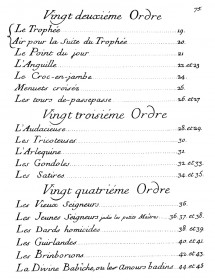 75
Vingt deuxiéme Ordre
Le Trophée 19.
Air pour la Suite du Trophée 20.
Le Point du jour 21
L'Anguille 22 et 23
Le Croc-en-jambe 24.
Menuets croisés 25.
Les tours de-passepasse 26 et 27
Vingt troisiéme Ordre
L'Audacieuse 28 et 29.
Les Tricoteuses 30
L'Arlequine 31
Les Gondoles 32 et 33.
Les Satires 34 et 35
Vingt quatriéme Ordre
Les Vieux Seigneurs 36.
Les Jeunes Seigneurs 36 37 et 38.
Les Dards homicides 38 et 39
Les Guirlandes 40 et 41
Les Brinborions 42 et 43
La Divine Babiche, ou les Amours badins 44 et 45